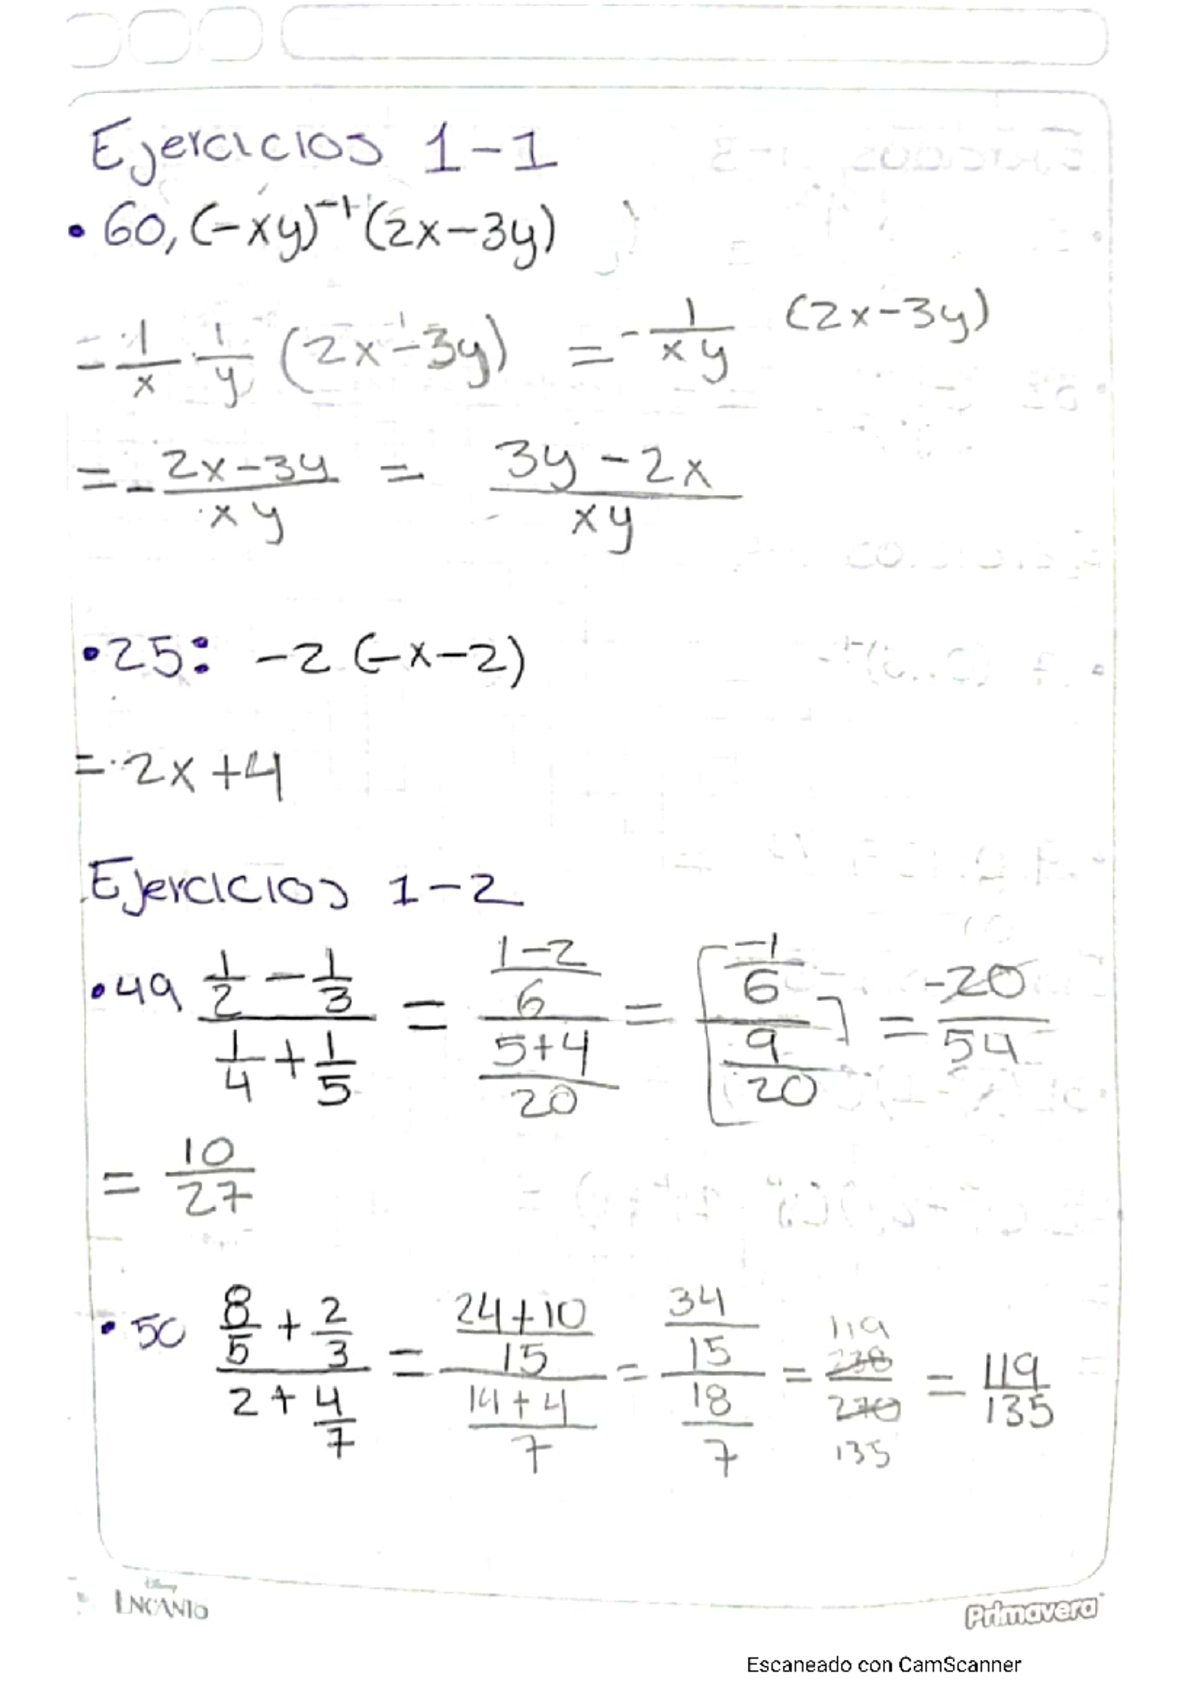 Ejercicios 1-1
• 60, (-xy)⁻¹ (2x-3y)
- 1/x · 1/y (2x-3y) = - 1/xy (2x-3y)
= - 2x-3y/xy = 3y-2x/xy
• 25: -2 (-x-2)
= 2x+4
Ejercicios 1-2
• 49 (1/2 - 1/3)/(1/4 + 1/5) = ((1-2)/6)/((5+4)/20) = [(-1/6)/(9/20)] = -20/54
= 10/27
• 50 (8/5 + 2/3)/(2 + 4/7) = ((24+10)/15)/((14+4)/7) = (34/15)/(18/7) = 119 238/270 135 = 119/135
Disney
ENCANTO
Primavera
Escaneado con CamScanner